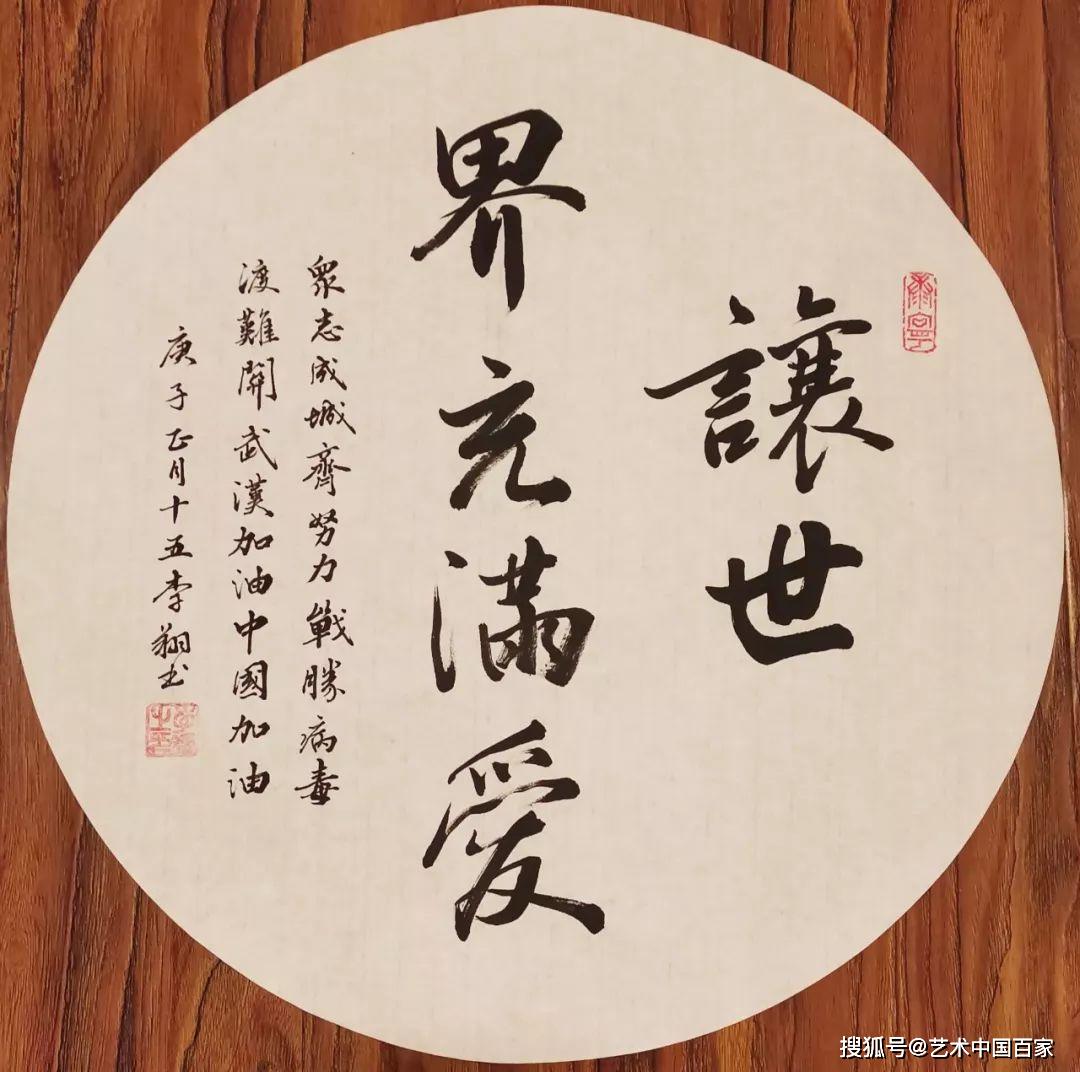 讓世
界充滿愛
衆志成城齊努力戰勝病毒
渡難關武漢加油中國加油
庚子正月十五李翔书
搜狐号@艺术中国百家